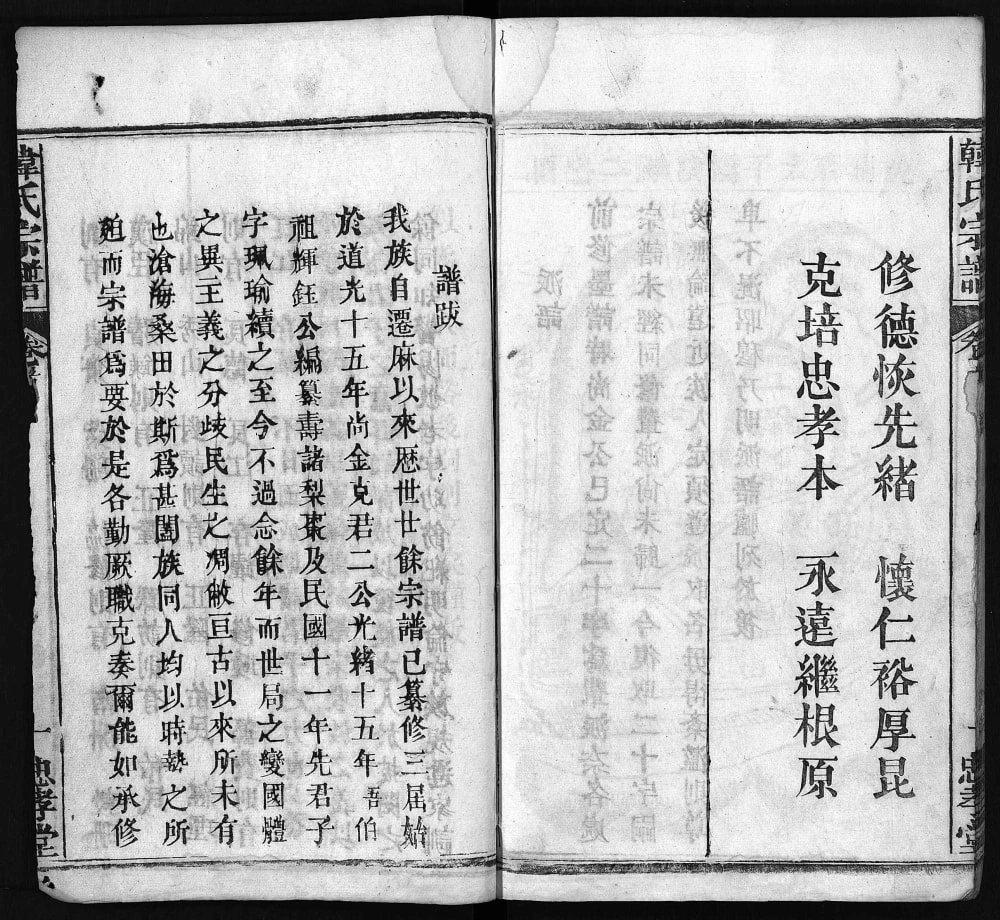 韓氏宗譜
修德恢先緒　懷仁裕厚昆
克培忠孝本　永遠繼根原
忠孝堂
譜跋
我族自遷麻以來歷世世餘宗譜已纂修三届始
於道光十五年尚金克君二公光緒十五年吾伯
祖輝鈺公編纂壽諸梨棗及民國十一年先君子
字珮瑜續之至今不過念餘年而世局之變國體
之異王義之分歧民生之凋敝亘古以來所未有
也滄海桑田於斯爲甚闔族同人均以時勢之所
廹而宗譜爲要於是各勤厥職克奏爾能如承修
韓氏宗譜
一
忠孝堂